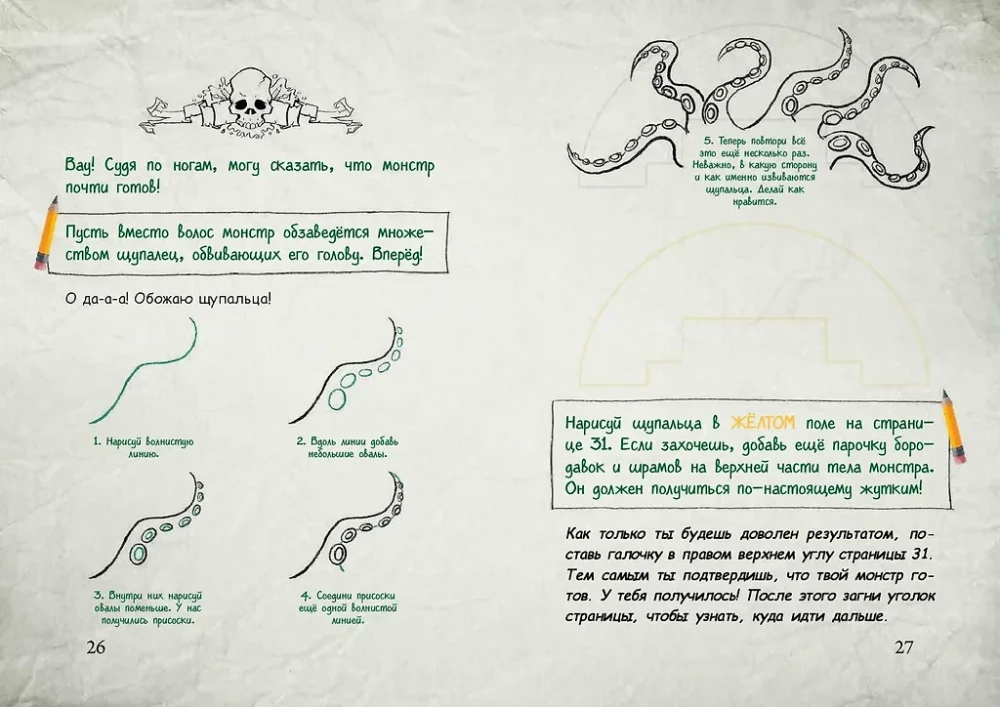 Вау! Судя по ногам, могу сказать, что монстр
почти готов!
Пусть вместо волос монстр обзаведётся множе-
ством щупалец, обвивающих его голову. Вперёд!
О да-а-а! Обожаю щупальца!
1. Нарисуй волнистую
линию.
2. Вдоль линии добавь
небольшие овалы.
3. Внутри них нарисуй
овалы поменьше. У нас
получились присоски.
4. Соедини присоски
ещё одной волнистой
линией.
26
5. Теперь повтори всё
это ещё несколько раз.
Неважно, в какую сторону
и как именно извиваются
щупальца. Делай как
нравится.
Нарисуй щупальца в ЖЁЛТОМ поле на страни-
це 31. Если захочешь, добавь ещё парочку боро-
давок и шрамов на верхней части тела монстра.
Он должен получиться по-настоящему жутким!
Как только ты будешь доволен результатом, по-
ставь галочку в правом верхнем углу страницы 31.
Тем самым ты подтвердишь, что твой монстр го-
тов. У тебя получилось! После этого загни уголок
страницы, чтобы узнать, куда идти дальше.
27